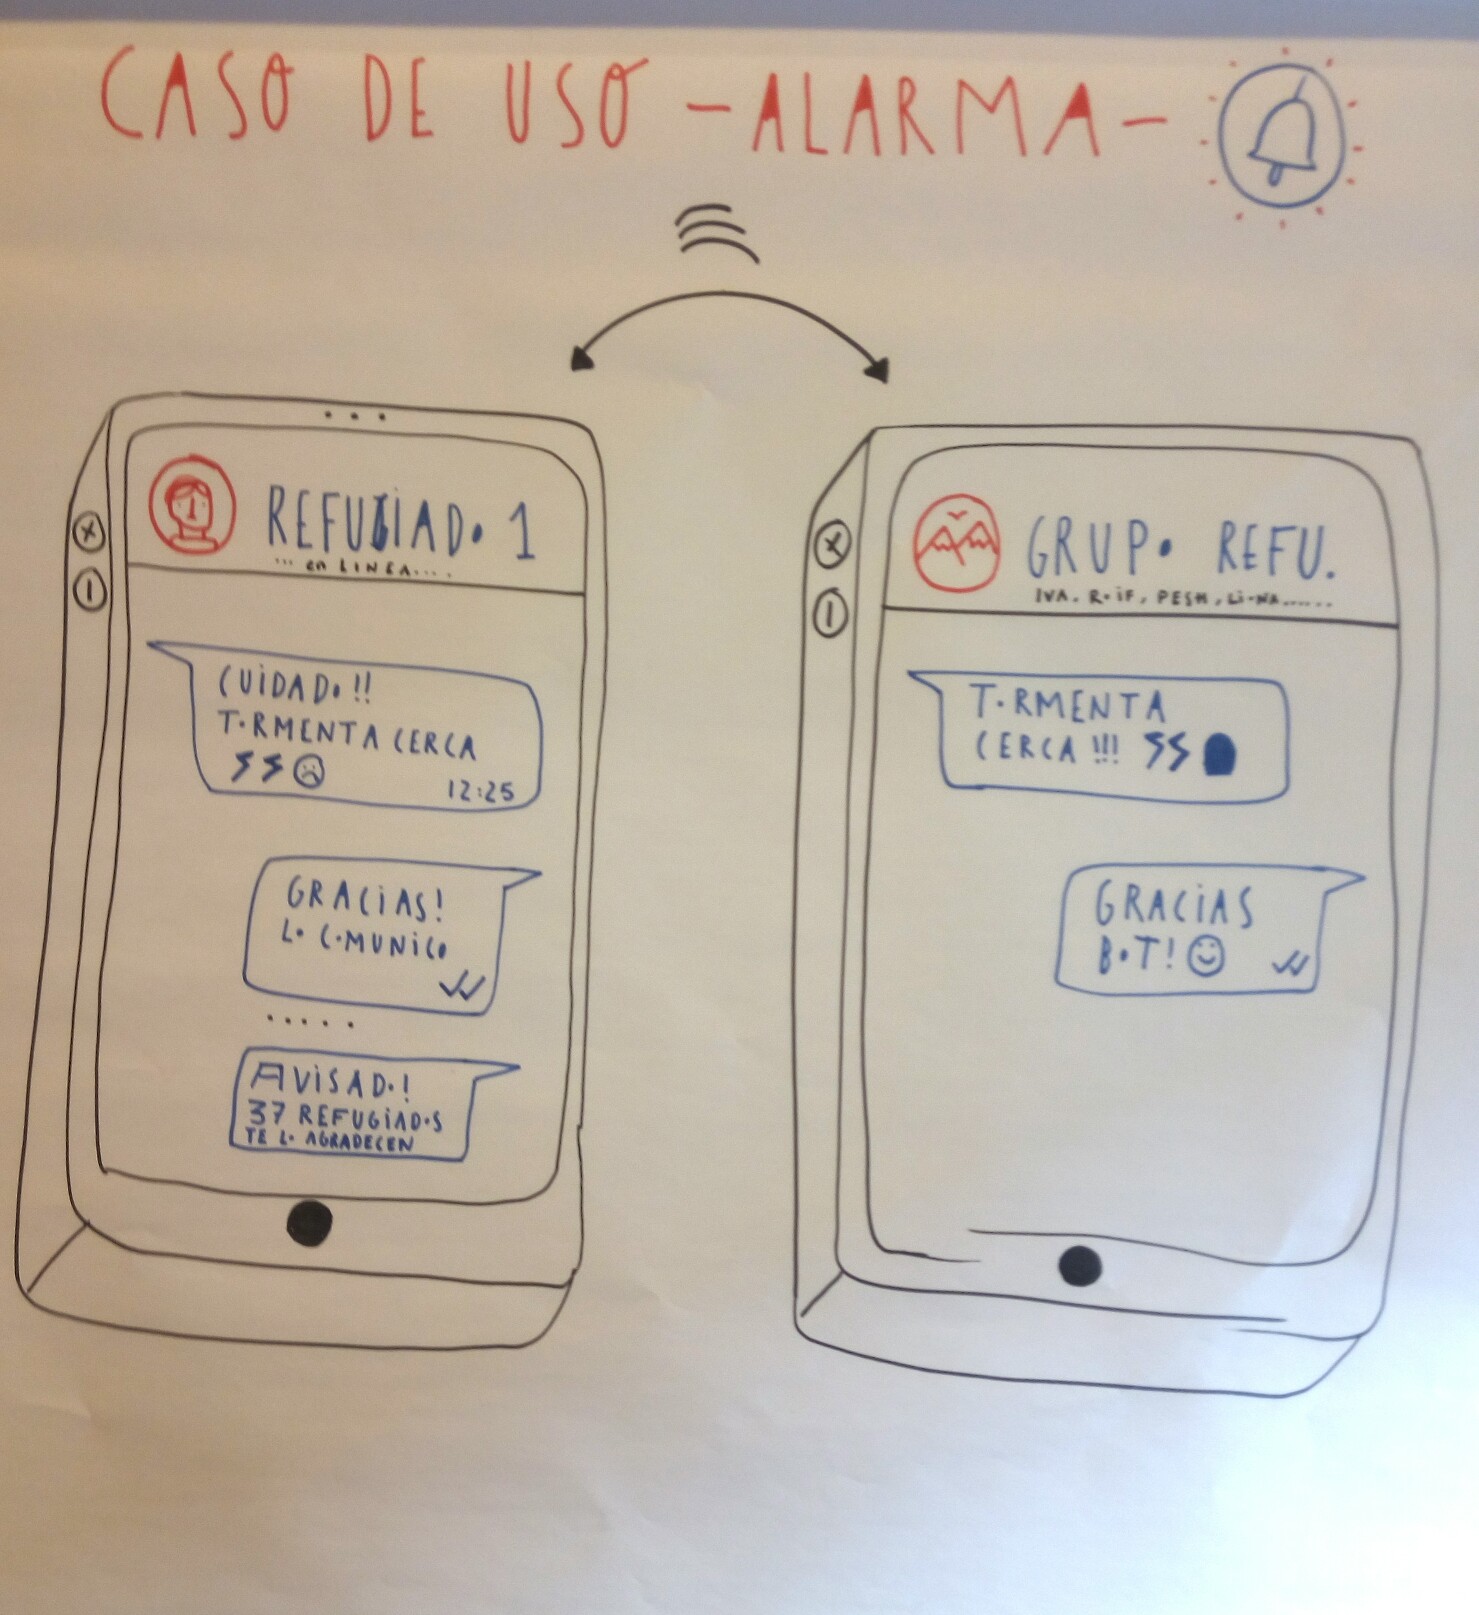 CASO DE USO - ALARMA -
REFUGIADO 1
... en LINEA....
CUIDADO!!
TORMENTA CERCA
12:25
GRACIAS!
LO COMUNICO
.....
AVISADO!
37 REFUGIADOS
TE LO AGRADECEN
GRUPO REFU.
IVA. ROIF, PESH, LI-NA......
TORMENTA
CERCA !!!
GRACIAS
BOT!